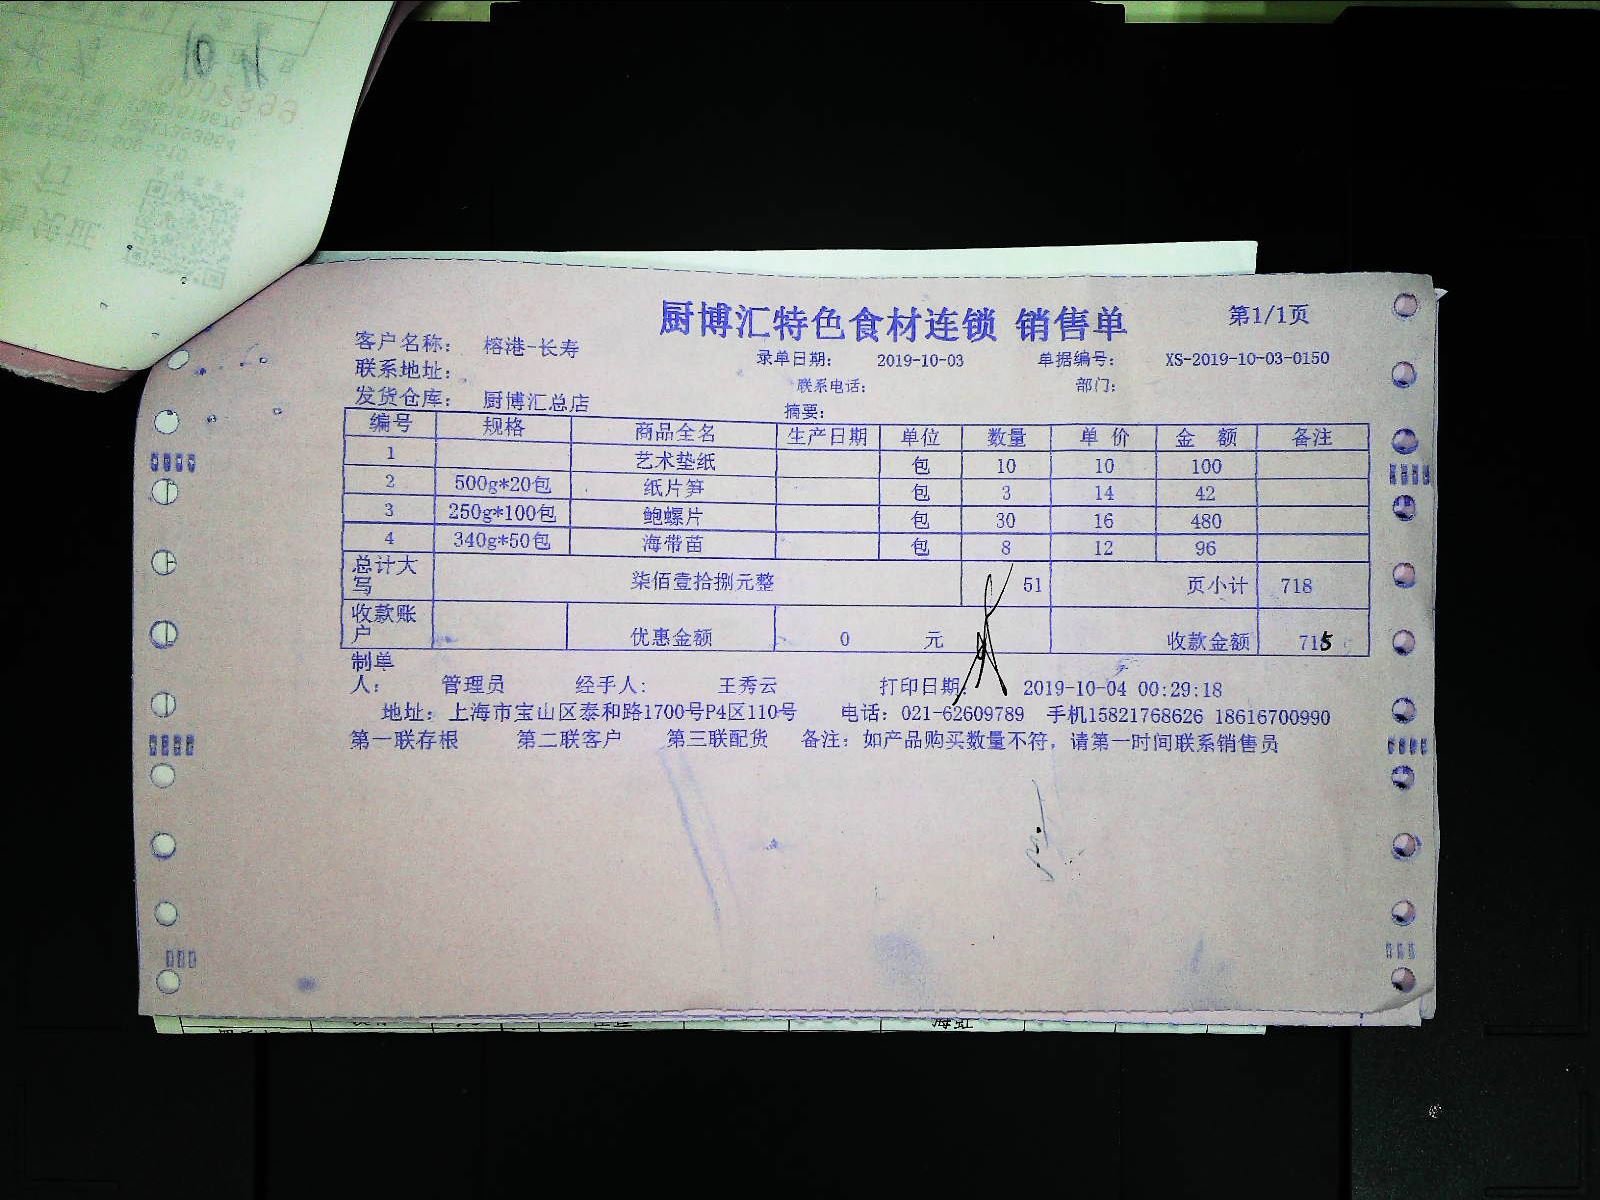 0002899
厨博汇特色食材连锁 销售单
第1/1页
客户名称: 榕港-长寿
录单日期: 2019-10-03 单据编号: XS-2019-10-03-0150
联系地址: 联系电话: 部门:
发货仓库: 厨博汇总店 摘要:
编号 规格 商品全名 生产日期 单位 数量 单价 金额 备注
1 艺术垫纸 包 10 10 100
2 500g*20包 纸片笋 包 3 14 42
3 250g*100包 鲍螺片 包 30 16 480
4 340g*50包 海带苗 包 8 12 96
总计大写 柒佰壹拾捌元整 51 页小计 718
收款账户 优惠金额 0 元 收款金额 715
制单人: 管理员 经手人: 王秀云 打印日期: 2019-10-04 00:29:18
地址: 上海市宝山区泰和路1700号P4区110号 电话: 021-62609789 手机15821768626 18616700990
第一联存根 第二联客户 第三联配货 备注: 如产品购买数量不符, 请第一时间联系销售员
海虹